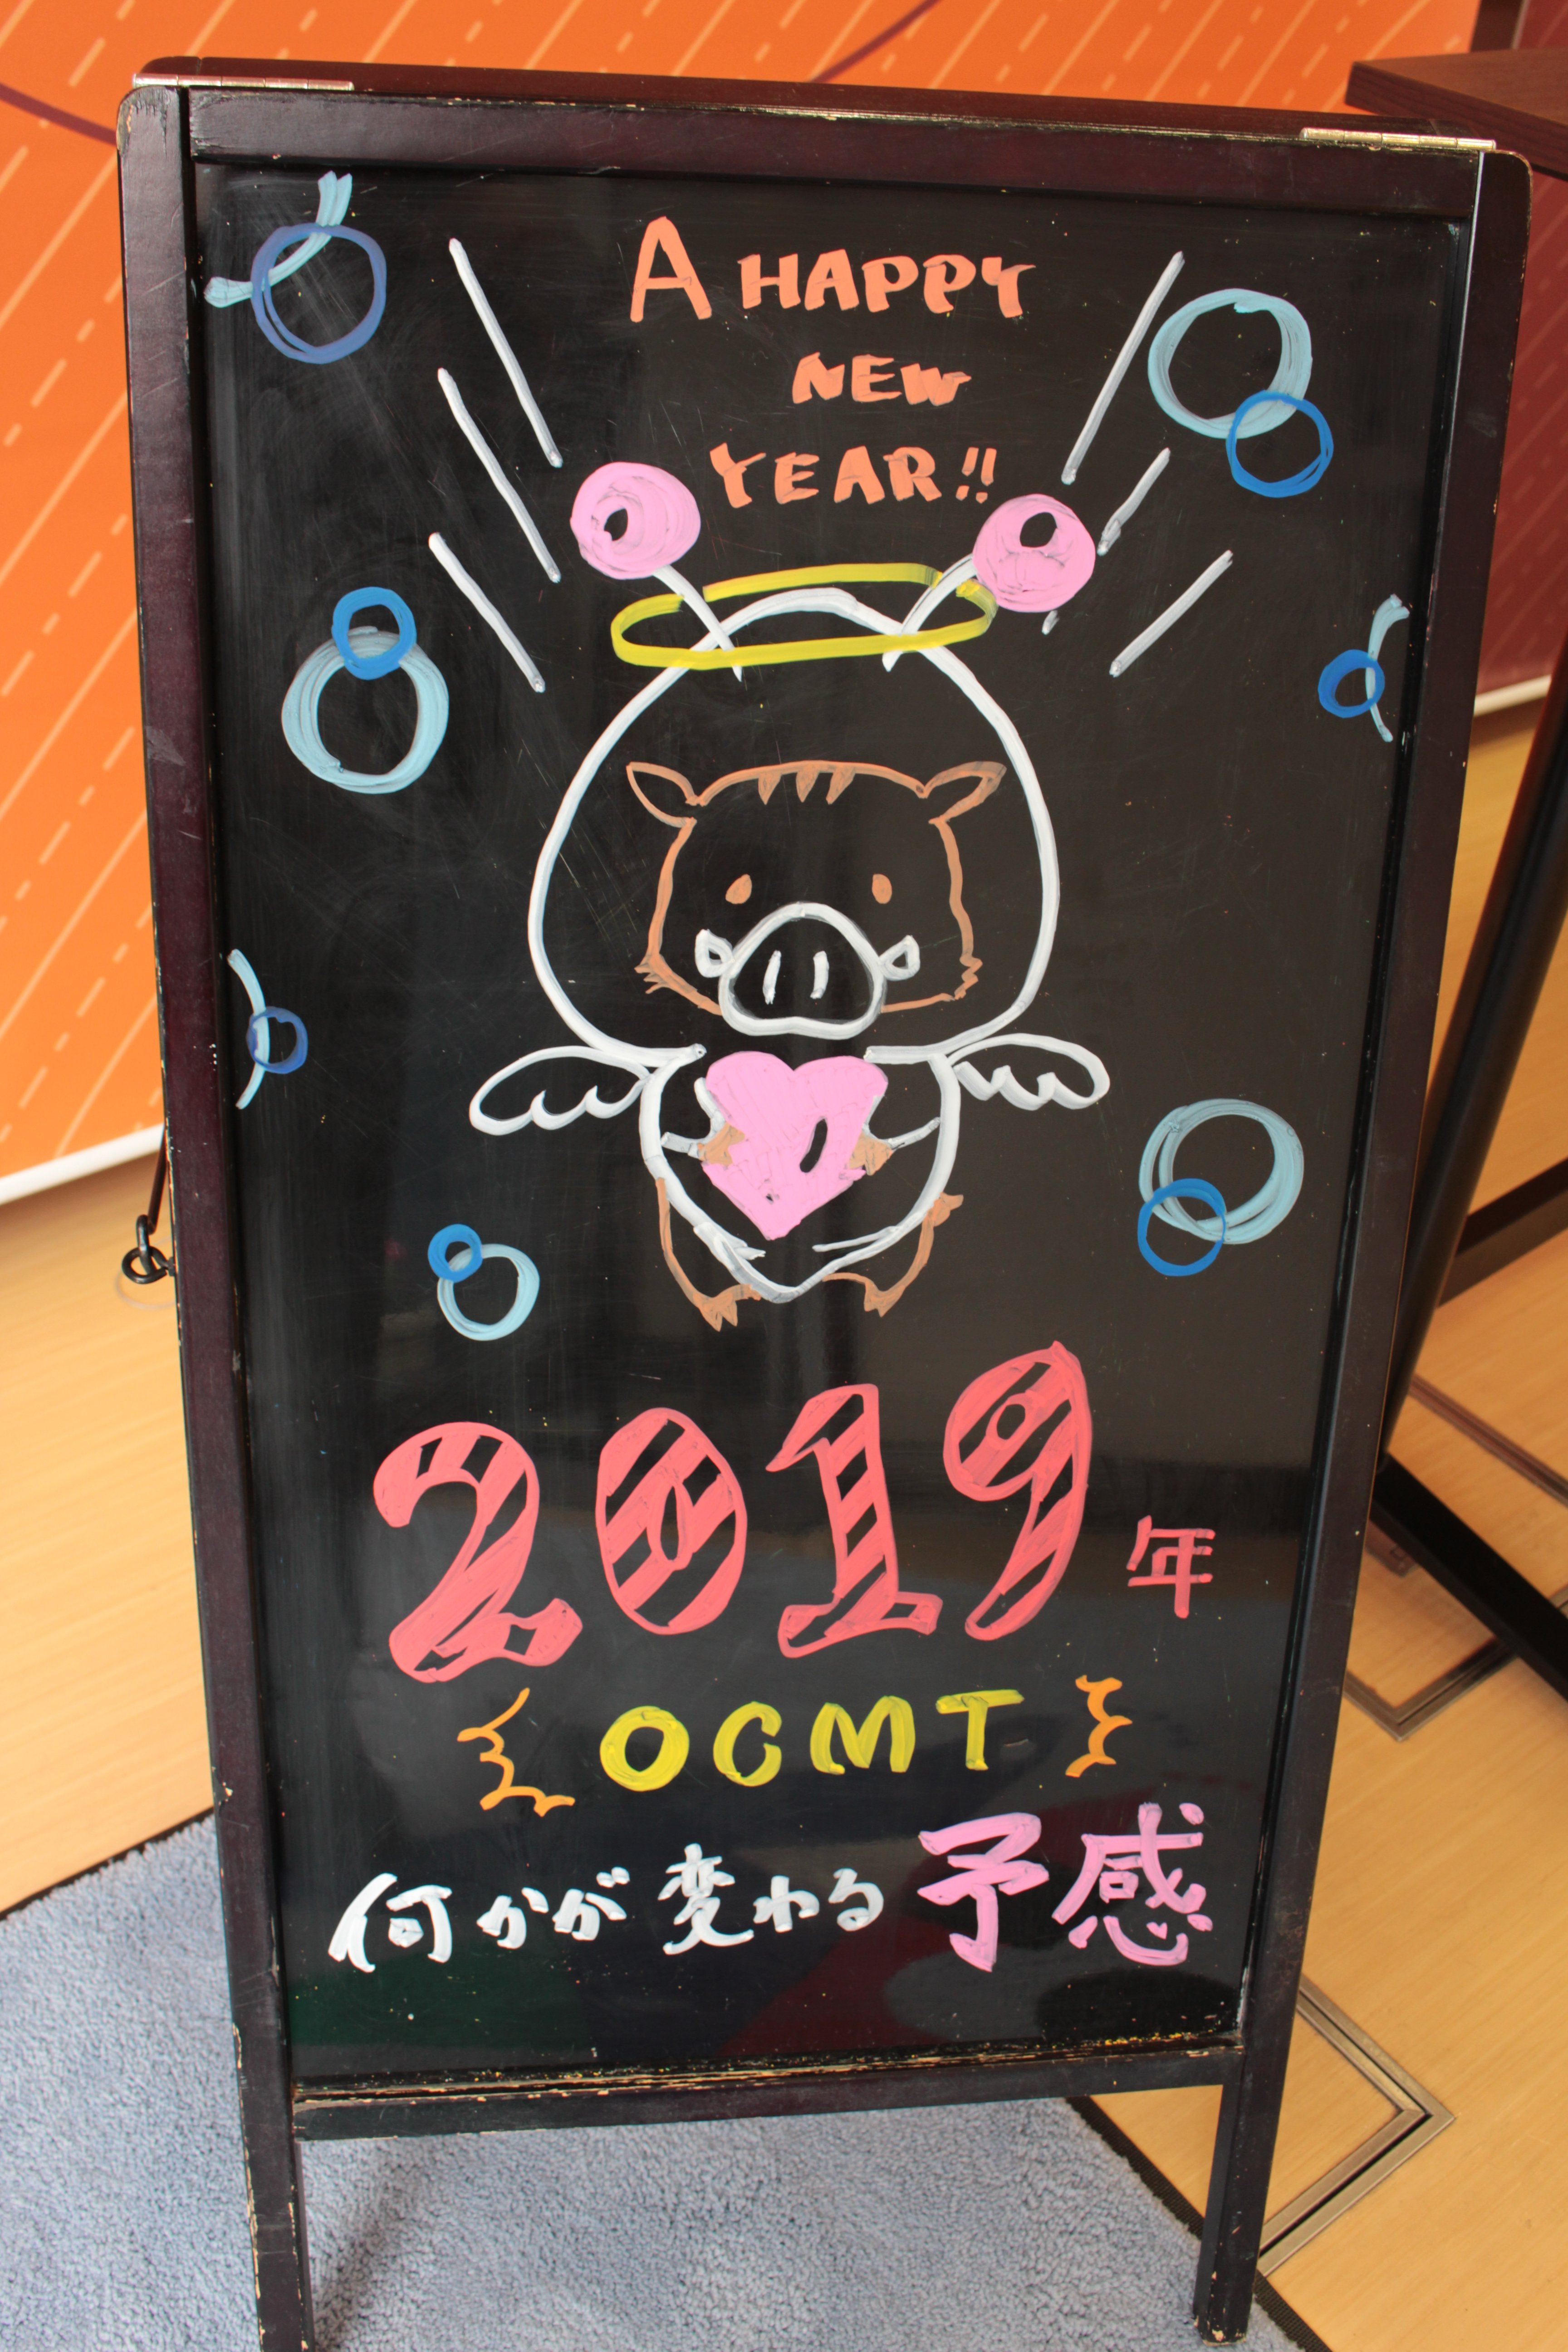 A HAPPY
NEW
YEAR!!
2019年
OCMT
何かが変わる予感